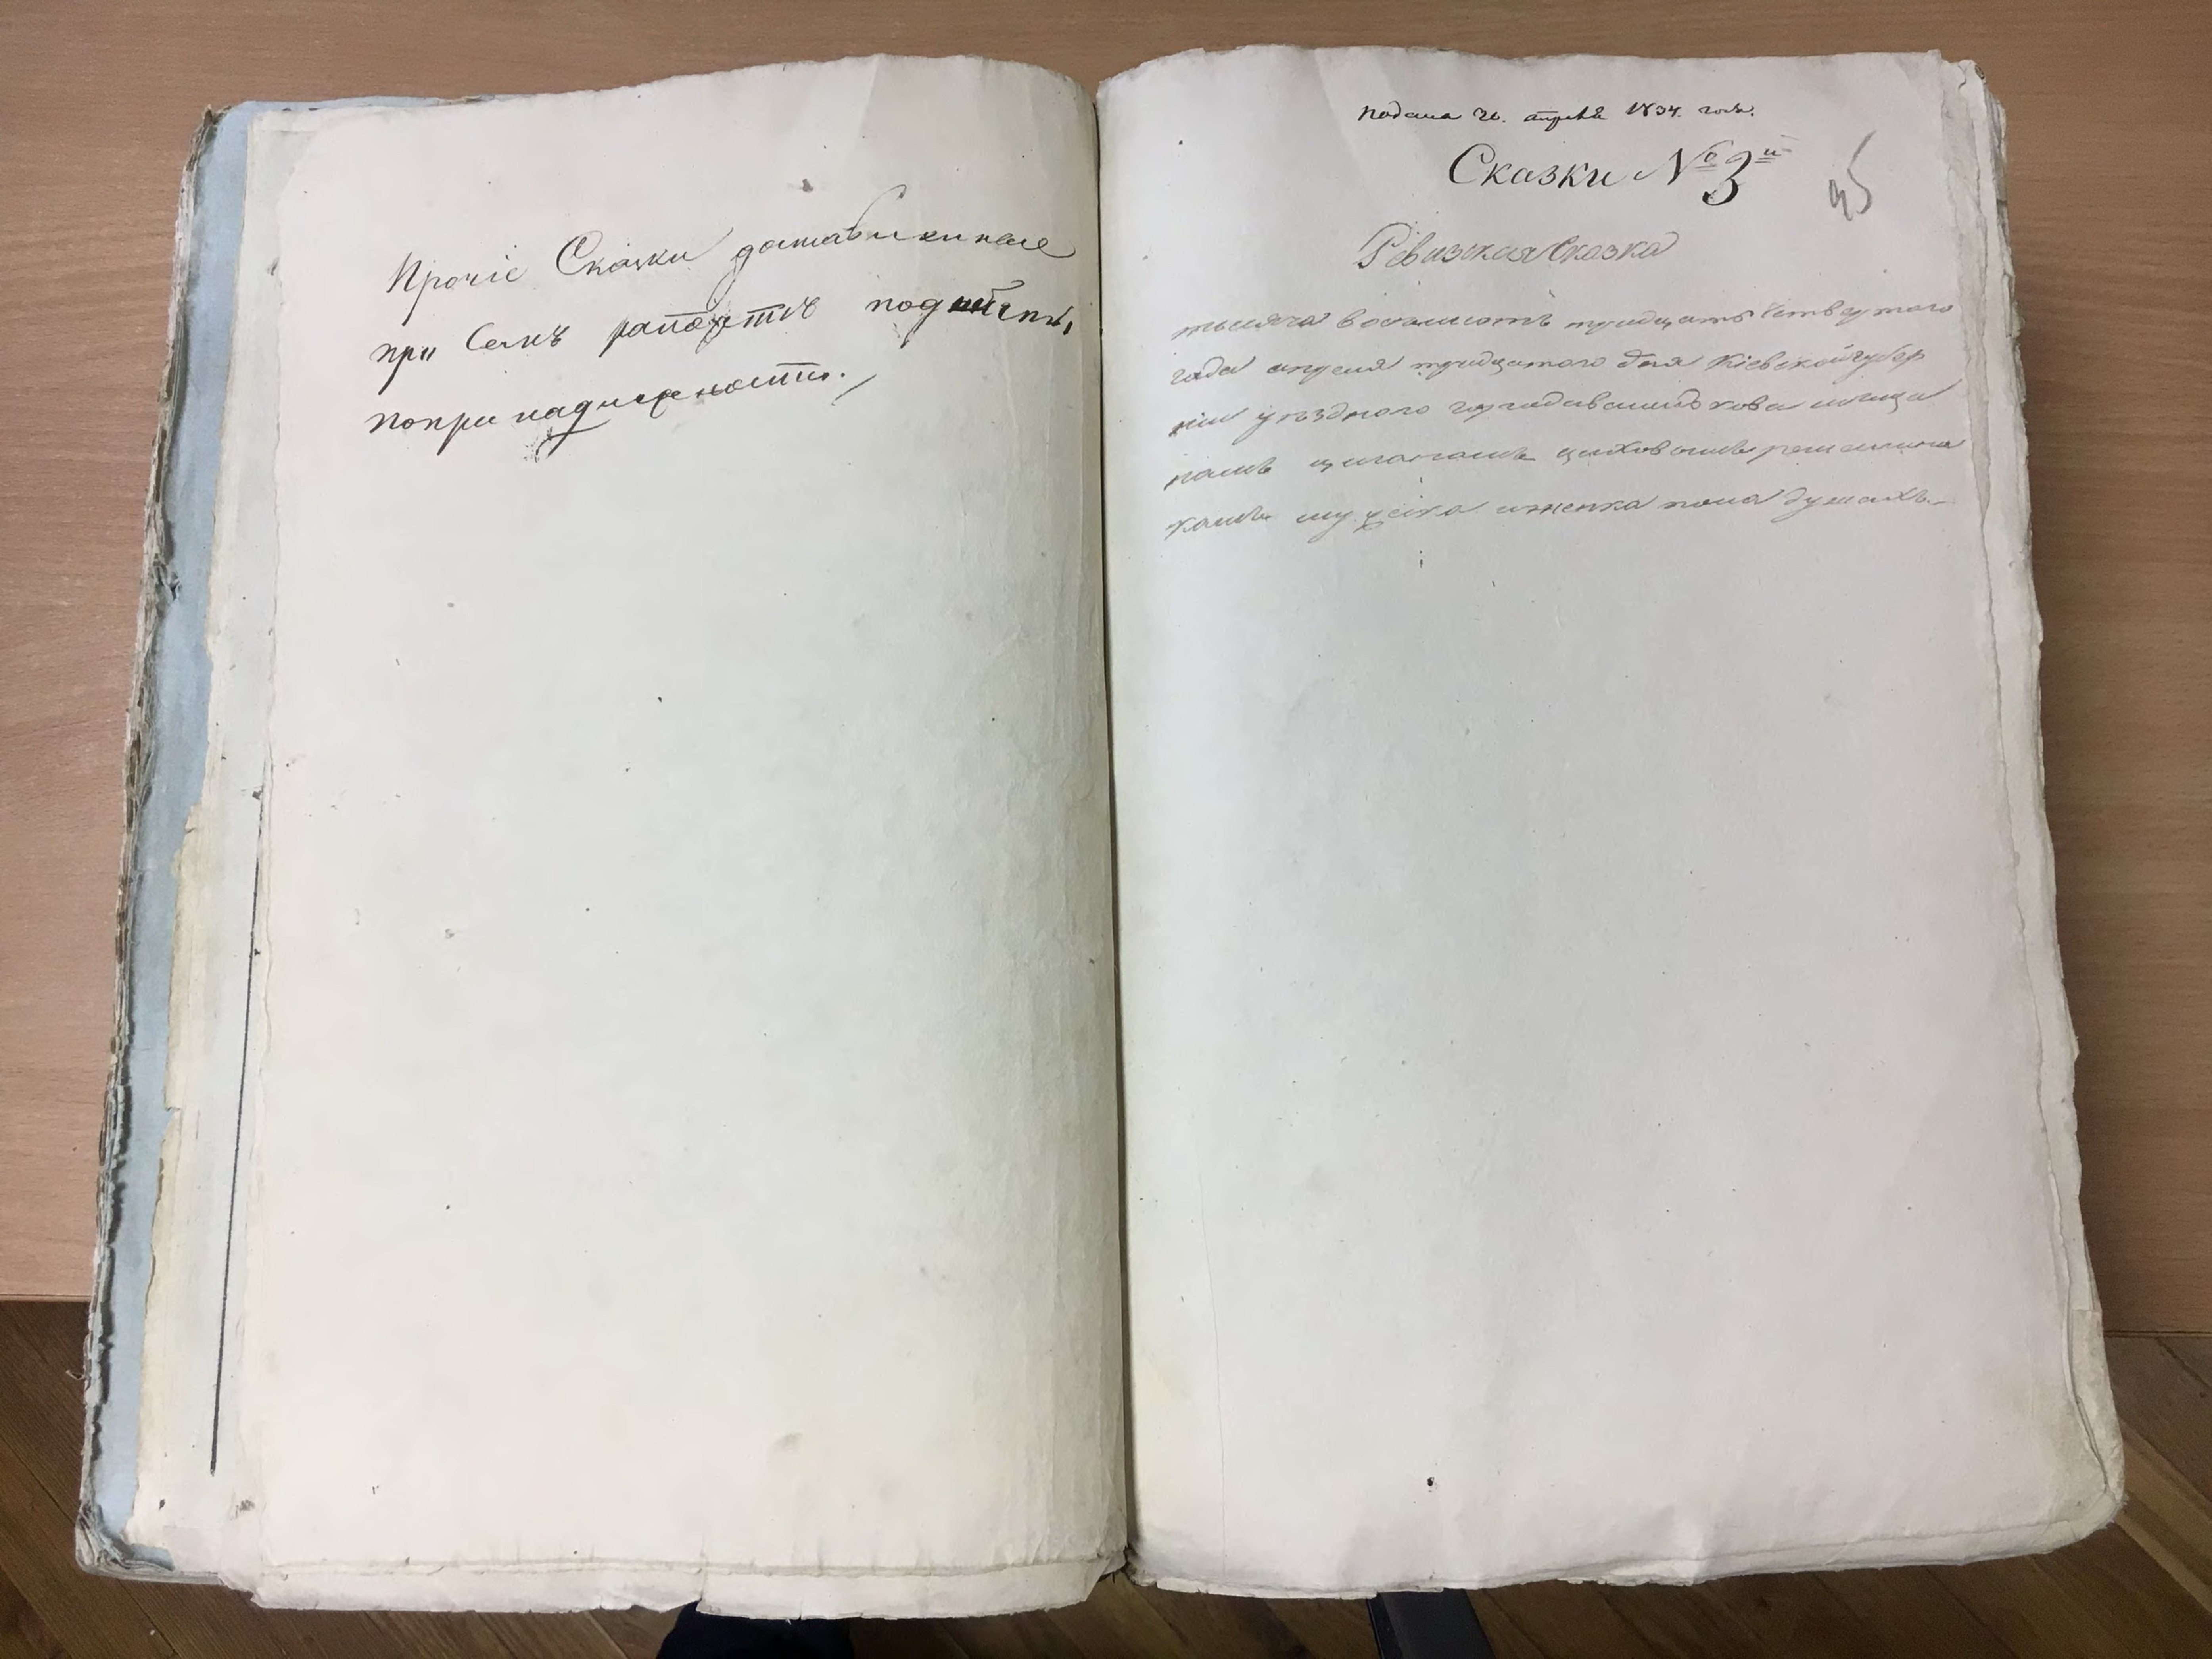 Прочіе Сказки доставленные
при Семъ рапортѣ
попринадлежности.
Подана 26. апреля 1834. года.
Сказки № 3й
45
Ревизская Сказка
тысяча восемьсотъ тридцать четвертого
года апреля тридцатого дня Кіевской губер
ніи уѣзднаго города Василькова
цыганамъ цеховымъ
мужеска и женска пола душахъ